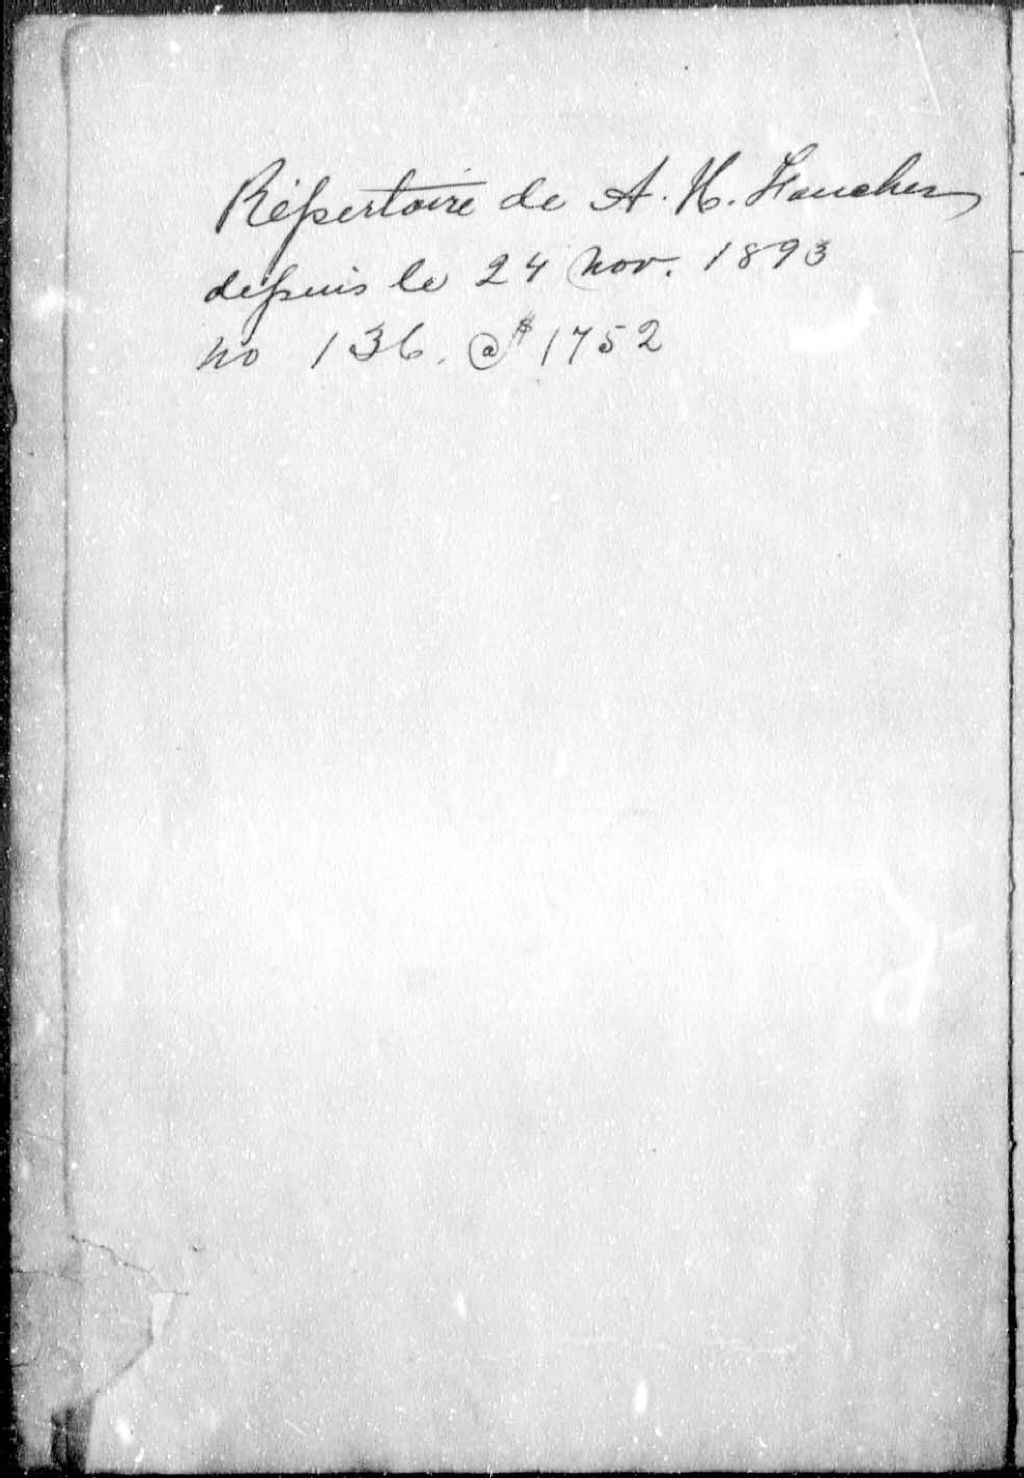 Répertoire de A. H. Faucher
depuis le 24 nov. 1893
no 136. @ # 1752